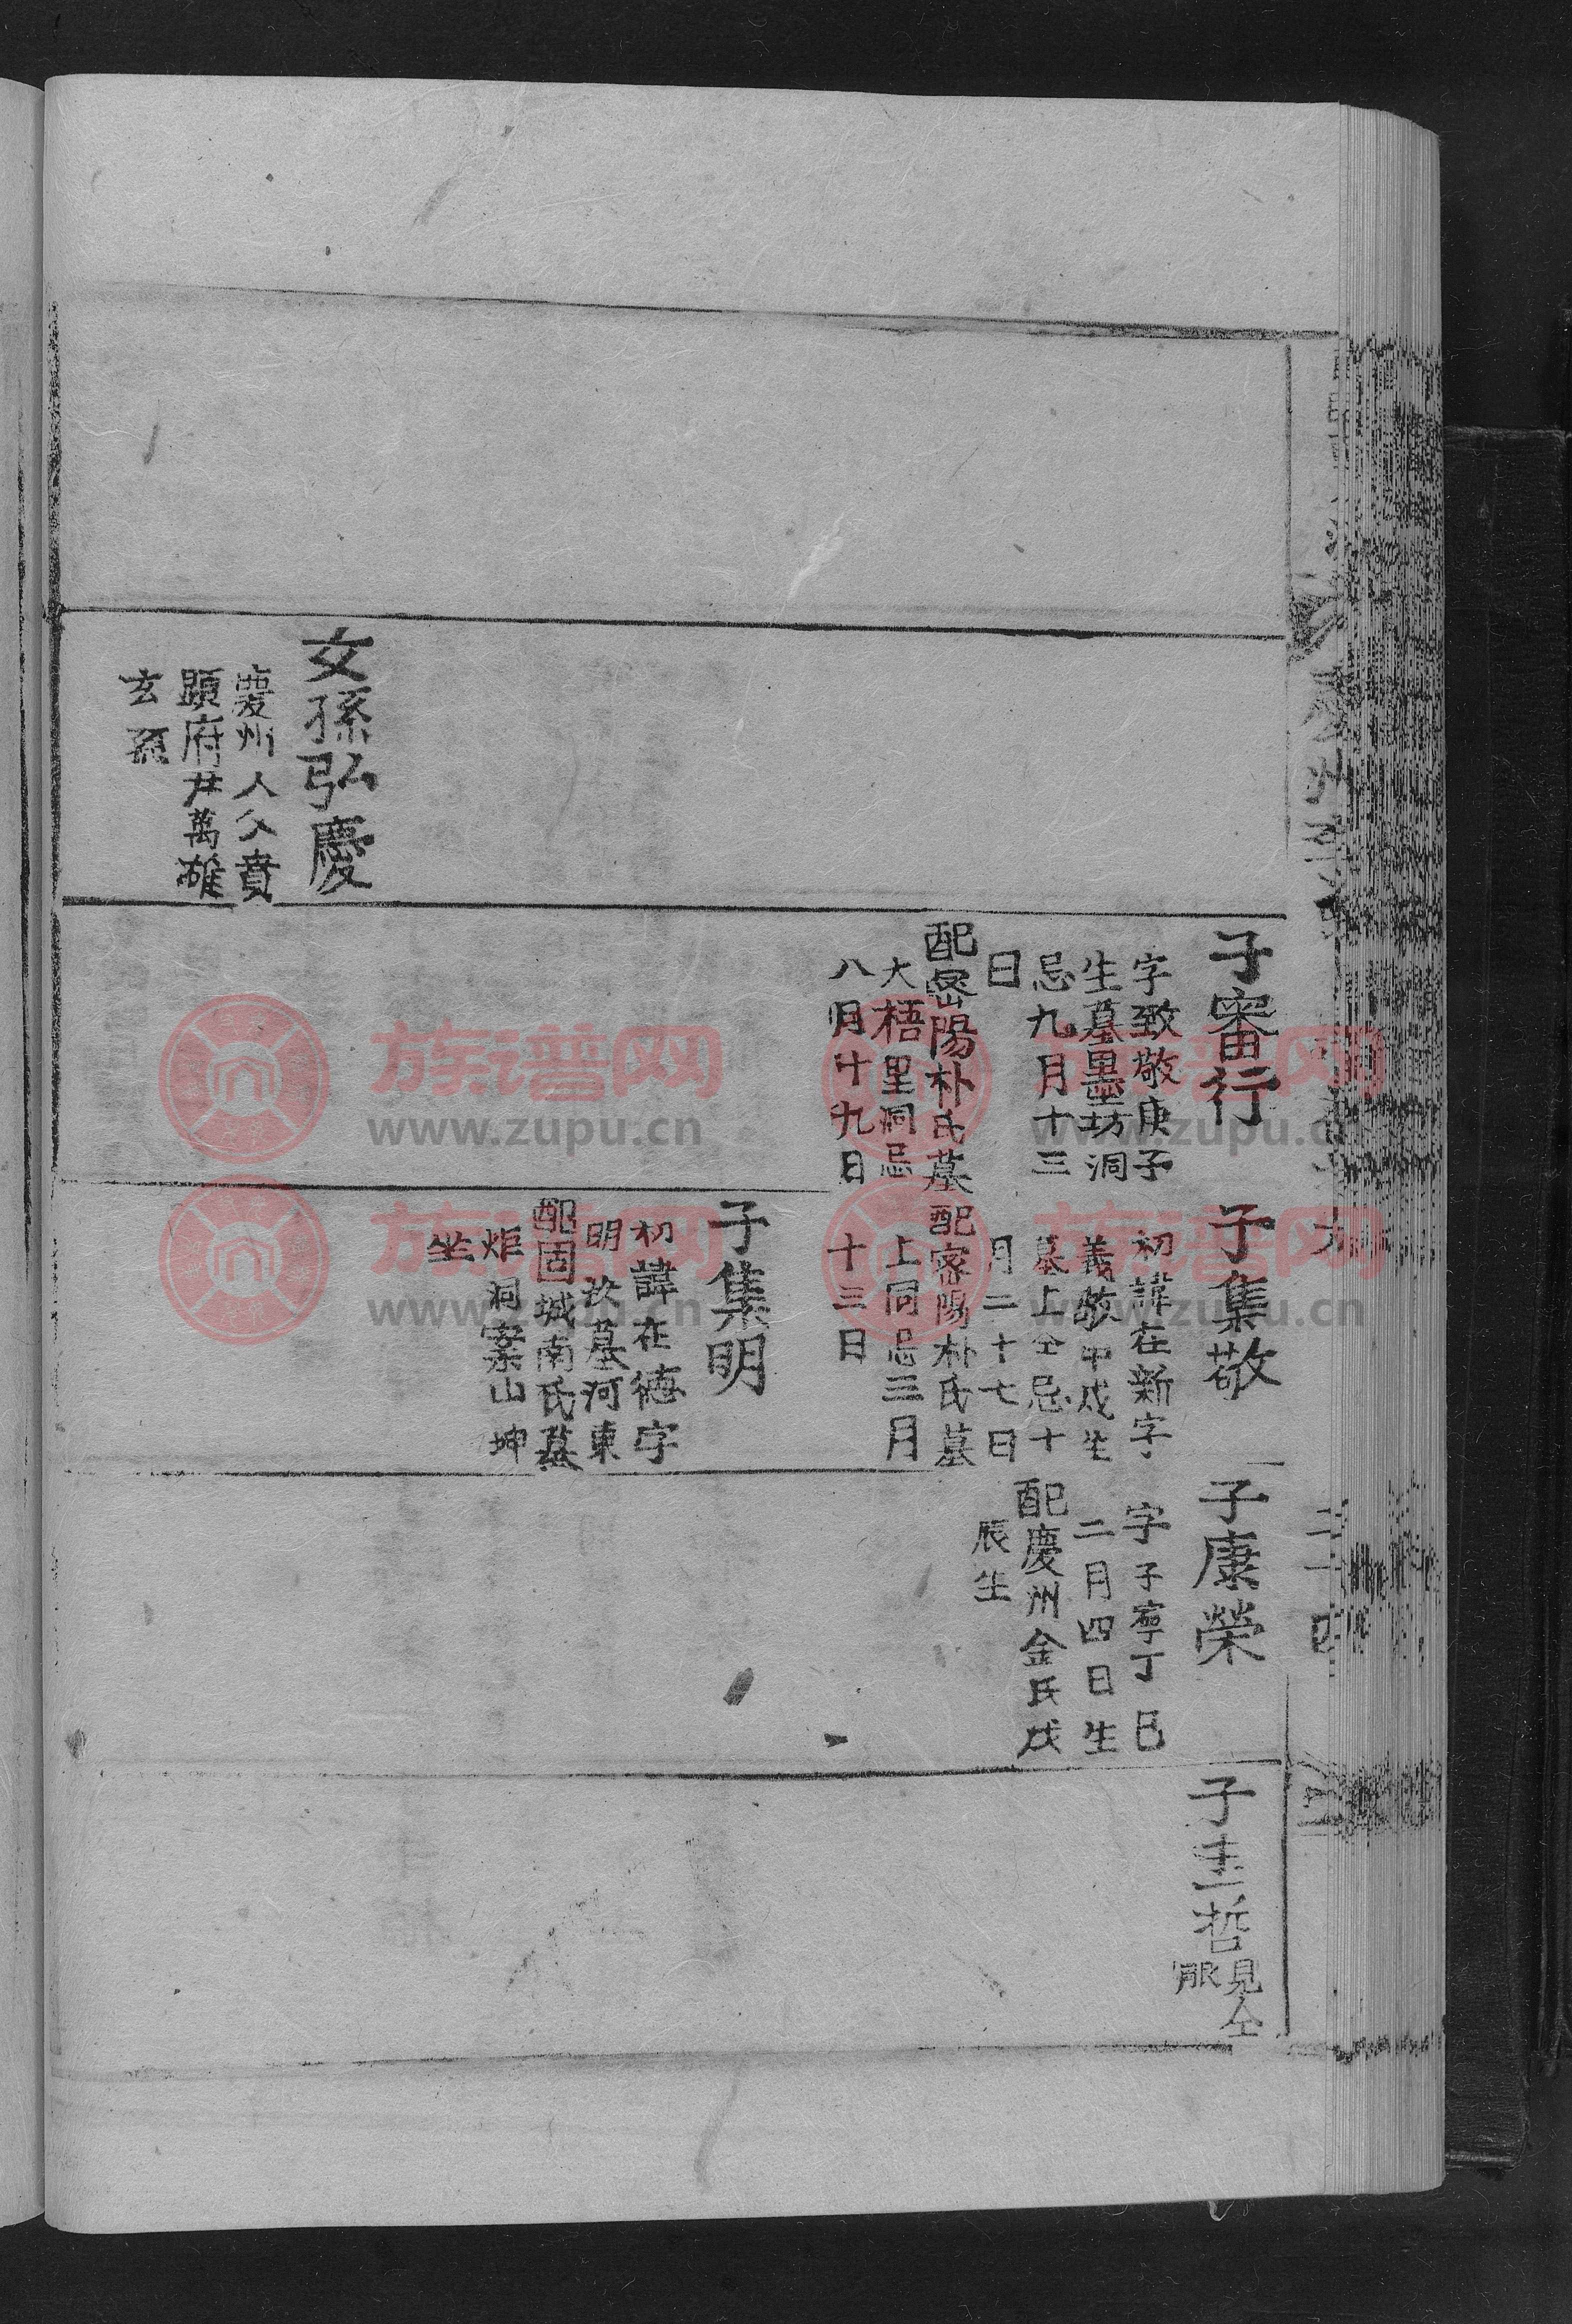 女孫弘慶
慶州人父賁
顯府尹萬雄
玄孫
子審行
字致敬庚子
生墓墨坊洞
忌九月十三
日
配密陽朴氏墓
大梧里洞忌
八月十九日
子集敬
初諱在新字
義敬甲戌生
墓上仝忌十
月二十七日
配密陽朴氏墓
上同忌三月
十三日
子集明
初諱在德字
明汝墓河東
配固城南氏墓
炬洞案山坤
坐
子康榮
字子寧丁巳
二月四日生
配慶州金氏戊
辰生
子圭哲
見仝
派
二十四
族谱网
www.zupu.cn
族谱网
www.zupu.cn
族谱网
www.zupu.cn
族谱网
www.zupu.cn